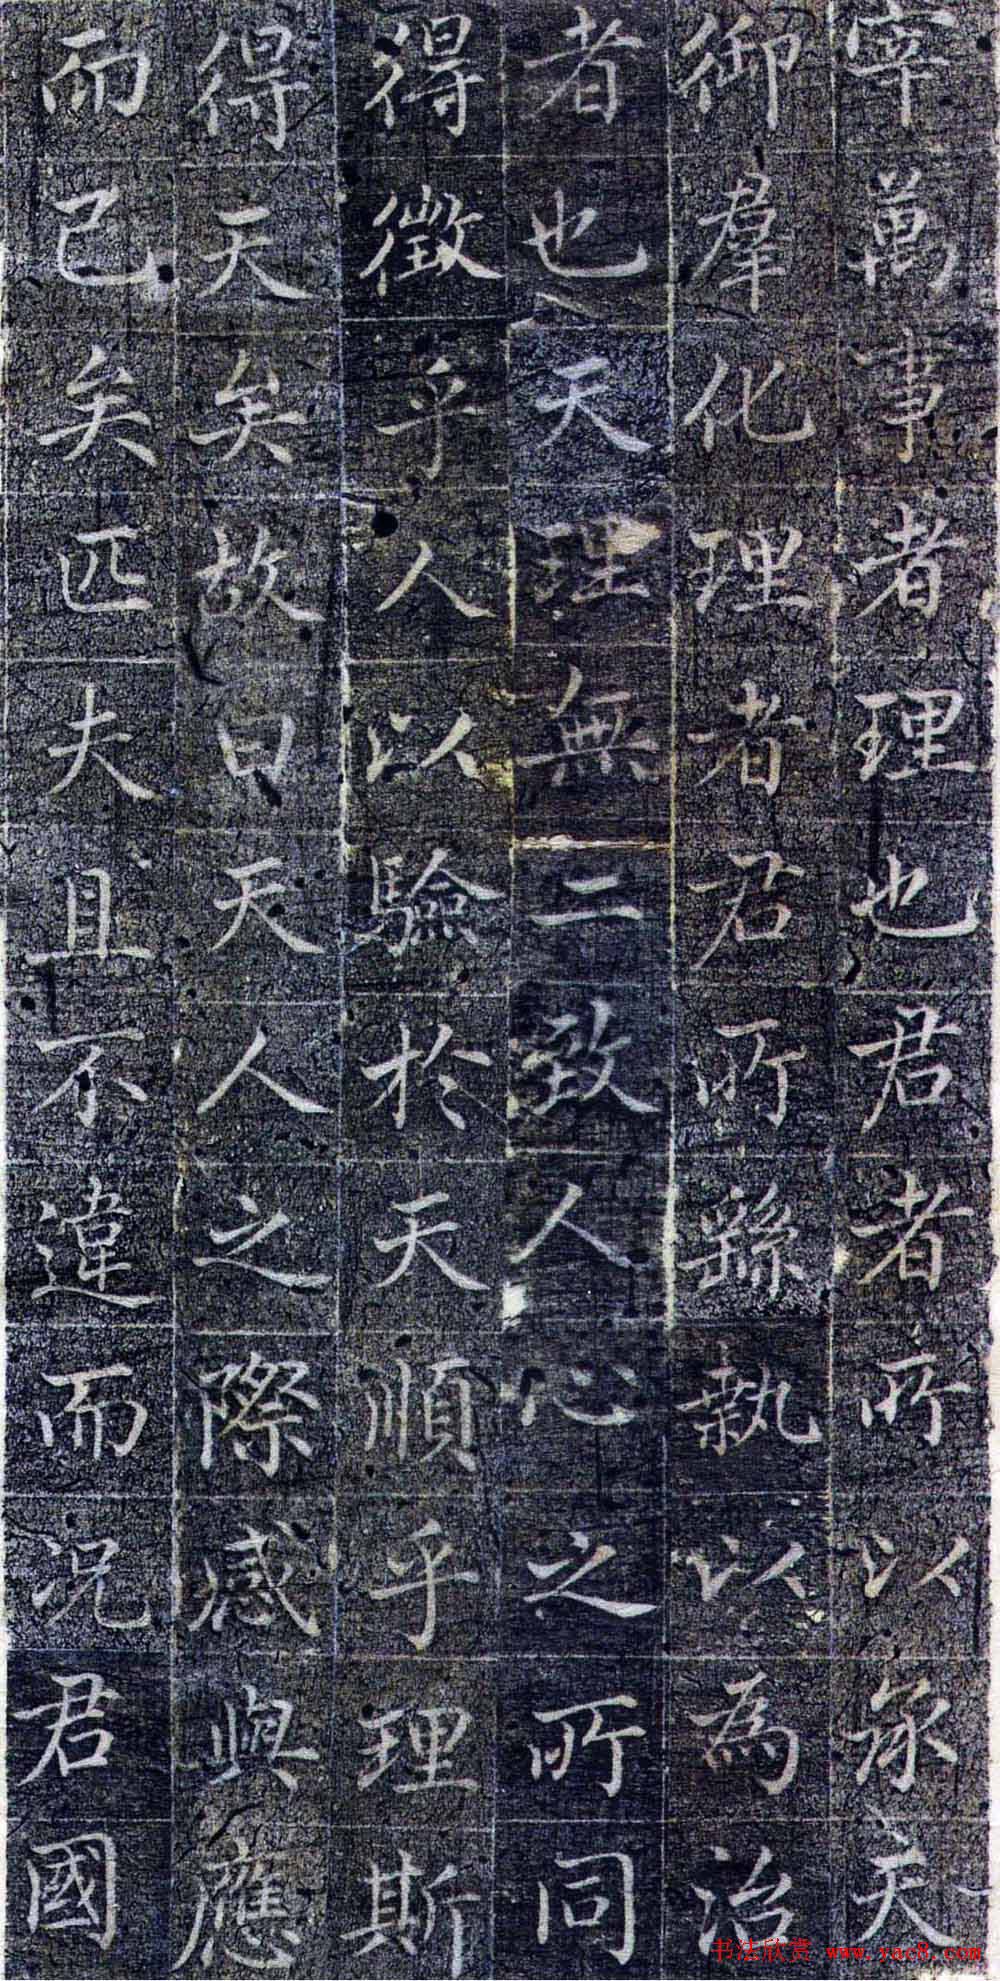 宰萬事者理也君者所以承天
御羣化理者君所繇執以為治
者也天理無二致人心之所同
得徵乎人以驗於天順乎理斯
得天矣故曰天人之際感與應
而已矣匹夫且不違而况君國
书法欣赏 www.yac8.com